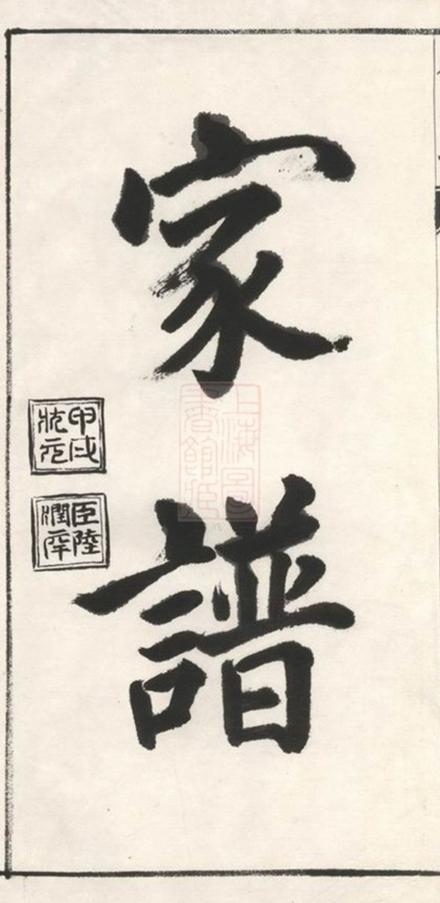 家譜
甲戌
狀元
臣陸
潤庠
上海圖
書館藏